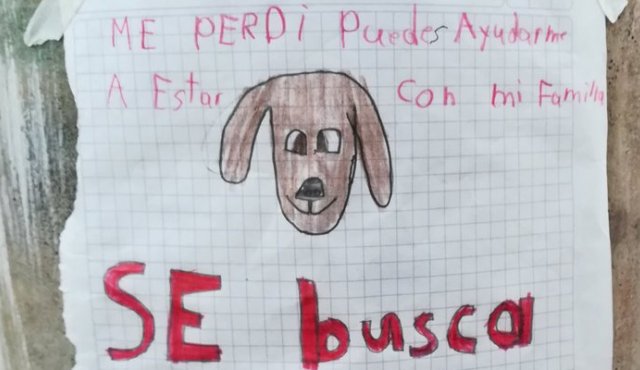 ME PERDi PuedesAyudarme
A Estar Con mi Familia
SE busca